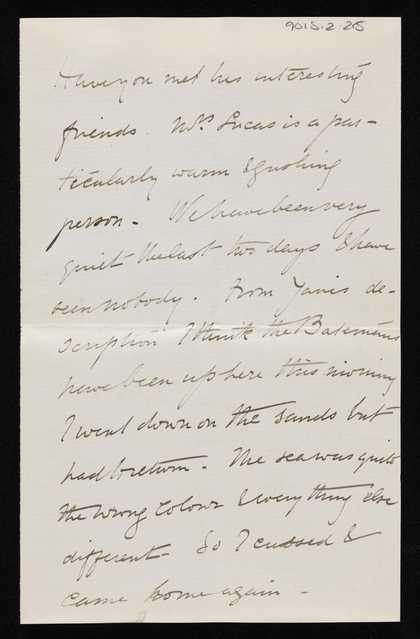 9015.2.25
Have you met his interesting
friends. Mrs. Lucas is a par-
ticularly warm & gushing
person - We have been very
quiet the last two days & have
seen nobody. From Janis de-
scription I think the Batemans
have been up here this morning
I went down on the sands but
had to return - The sea was quite
the wrong colour & everything else
different - So I cussed &
came home again -